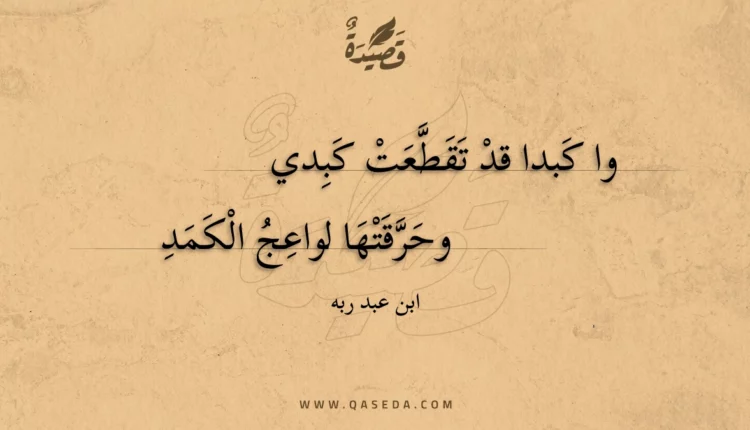 قَصِيْدَةٌ
وا كَبدا قدْ تَقَطَّعَتْ كَبِدي
وحَرَّقَتْهَا لواعِجُ الْكَمَدِ
ابن عبد ربه
WWW.QASEDA.COM